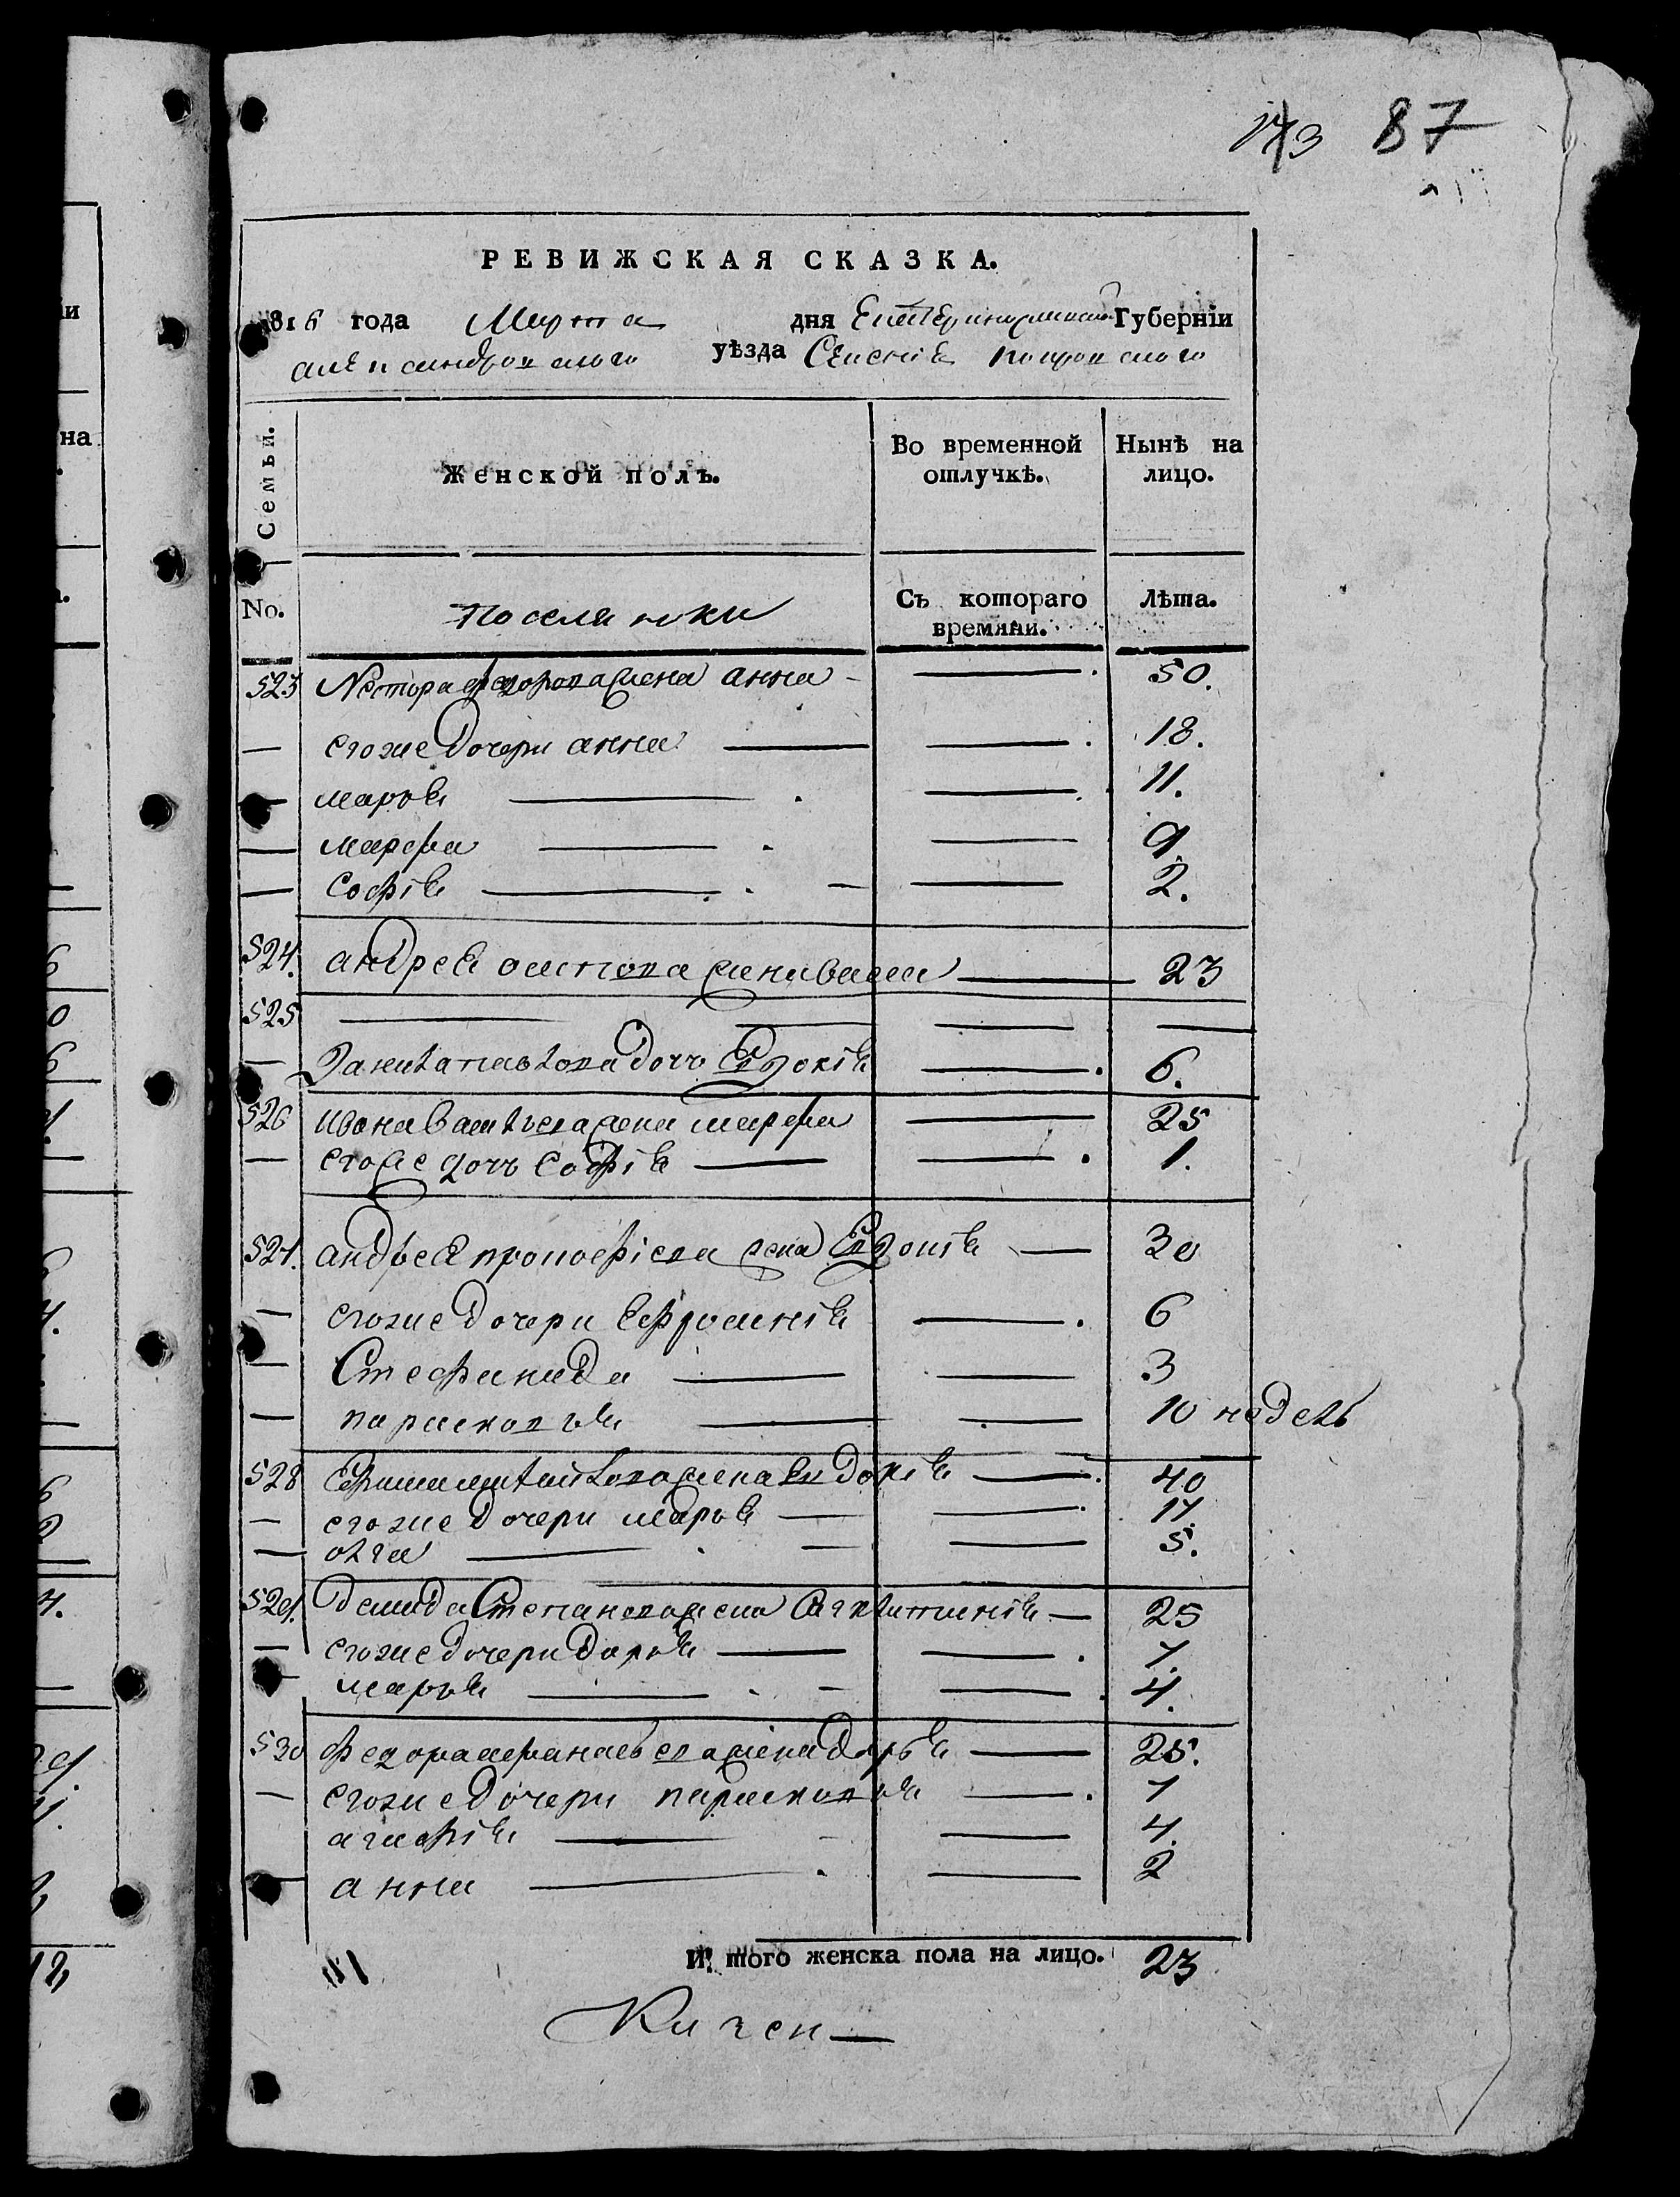 173 87
РЕВИЖСКАЯ СКАЗКА.
1816 года Марта дня Екатеринославской Губернiи
александровского уѣзда Селенiя покровского
Семьи. Женской полъ. Во временной отлучкѣ. Нынѣ на лицо.
No. Поселянки Съ котораго времяни. Лѣта.
523 Нестора федорова жена анна — 50.
— егоже дочери анна — 18.
— марья — 11.
— марфа — 9
— софiя — 2.
524. андрея жена — 23
525 — — —
— данила павлова дочь Евдокiя — 6.
526 ивана васильева жена марфа — 25
— егоже дочь софiя — 1.
527. андрея прокофiева жена Евдокiя — 30
— егоже дочери Ефросинiя — 6
— Стефанида — 3
— парасковья — 10 недель
528 жена Евдокiя — 40
— егоже дочери марья — 17.
— олга — 5.
529. Демида Степанова жена — 25
— егоже дочери дарья — 7.
— марья — 4.
530 федора афанасьева жена дарья — 25.
— егоже дочери парасковья — 7
агафiя — 4.
— анна — 2
И того женска пола на лицо. 23